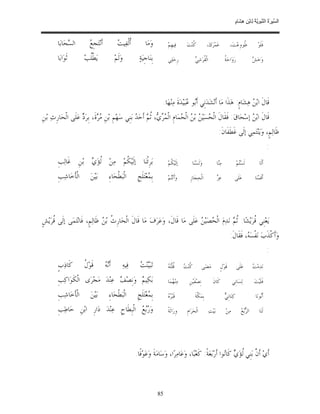 السِّيرَةُ النَّبَوِيَّةُ لِابْنِ هِشَامٍ
فَلَوْ طُووِعْتَ، عَمْرَكَ، كُنْتَ فِيهِمْ وَمَا أُلْفِيتُ أَنْتَجِعُ السَّحَابَا
وَخَشَّ رَوَاحَةُ الْقُرَشِيُّ رَحْلِي بِنَاجِيَةٍ وَلَمْ يَطْلُبْ ثَوَابَا
قَالَ ابْنُ هِشَامٍ: هَذَا مَا أَنْشَدَنِي أَبُو عُبَيْدَةَ مِنْهَا
قَالَ ابْنُ إِسْحَاقَ: فَقَالَ الْحُصَيْنُ بْنُ الْحُمَامِ الْمُرِّيُّ، ثُمَّ أَحَدُ بَنِي سَهْمِ بْنِ مُرَّةَ، يَرُدُّ عَلَى الْحَارِثِ بْنِ
ظَالِمٍ، وَيَنْتَمِي إِلَى غَطَفَانَ:
أَلَا لَسْتُمْ مِنَّا وَلَسْنَا إِلَيْكُمْ بَرِئْنَا إِلَيْكُمْ مِنْ لُؤَيِّ بْنِ غَالِبِ
أَقَمْنَا عَلَى عِزِّ الْحِجَازِ وَأَنْتُمْ بِمُعْتَلَجِ الْبَطْحَاءِ بَيْنَ الْأَخَاشِبِ
يَعْنِي قُرَيْشًا. ثُمَّ نَدِمَ الْحُصَيْنُ عَلَى مَا قَالَ، وَعَرَفَ مَا قَالَ الْحَارِثُ بْنُ ظَالِمٍ، فَانْتَمَى إِلَى قُرَيْشٍ
وَأَكْذَبَ نَفْسَهُ، فَقَالَ:
نَدِمْتُ عَلَى قَوْلٍ مَضَى كُنْتُ قُلْتُهُ تَبَيَّنْتُ فِيهِ أَنَّهُ قَوْلُ كَاذِبِ
فَلَيْتَ لِسَانِي كَانَ نِصْفَيْنِ مِنْهُمَا بَكِيمٌ وَنِصْفٌ عِنْدَ مَجْرَى الْكَوَاكِبِ
أَبُونَا كِنَانِيٌّ بِمَكَّةَ قَبْرُهُ بِمُعْتَلَجِ الْبَطْحَاءِ بَيْنَ الْأَخَاشِبِ
لَنَا الرُّبْعُ مِنْ بَيْتِ الْحَرَامِ وِرَاثَةً وَرُبْعُ الْبِطَاحِ عِنْدَ دَارِ ابْنِ حَاطِبِ
أَيْ أَنَّ بَنِي لُؤَيٍّ كَانُوا أَرْبَعَةً: كَعْبًا، وَعَامِرًا، وَسَامَةَ وَعَوْفًا.
85